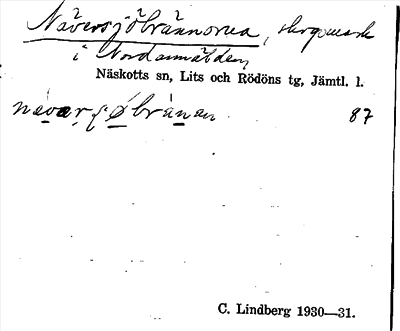 Näversjöbrännorna, skogsmark
i Nordannälden
Näskotts sn, Lits och Rödöns tg, Jämtl. l.
87
C. Lindberg 1930—31.